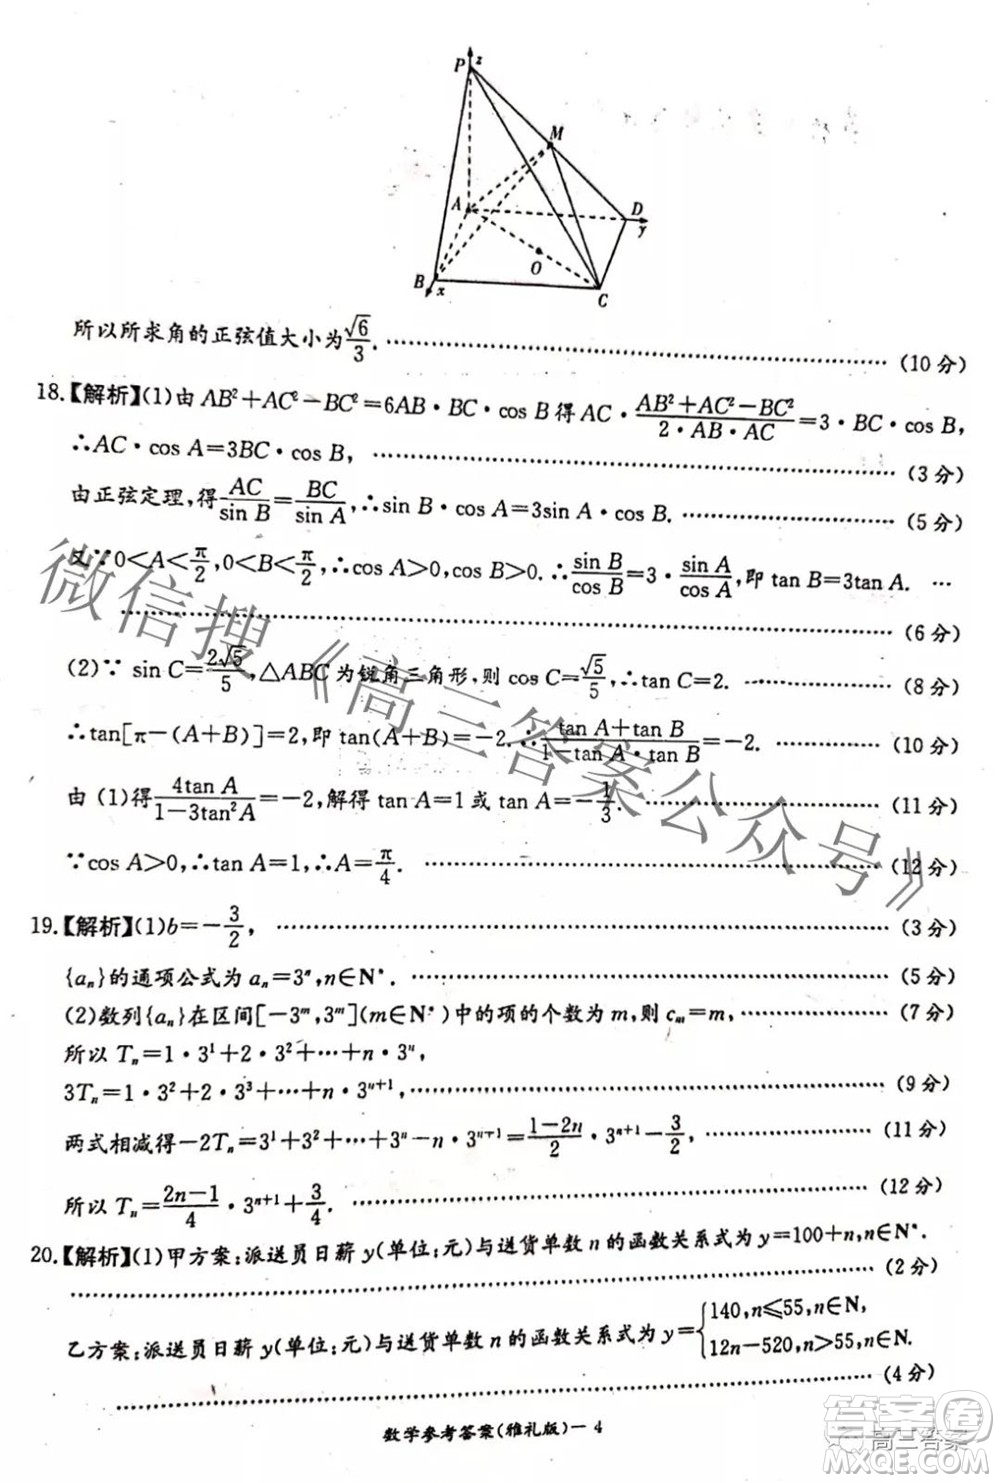 P z
M
A D
y
O
B
x C
所以所求角的正弦值大小为√6/3. (10分)
18.【解析】(1)由 AB²+AC²-BC²=6AB·BC·cos B 得 AC·(AB²+AC²-BC²)/(2·AB·AC)=3·BC·cos B,
∴AC·cos A=3BC·cos B, (3分)
由正弦定理,得 AC/sin B=BC/sin A,∴sin B·cos A=3sin A·cos B. (5分)
又∵0<A<π/2,0<B<π/2,∴cos A>0,cos B>0.∴sin B/cos B=3·sin A/cos A,即 tan B=3tan A. …
(6分)
(2)∵ sin C=2√5/5,△ABC 为锐角三角形,则 cos C=√5/5,∴tan C=2. (8分)
∴tan[π-(A+B)]=2,即 tan(A+B)=-2.∴(tan A+tan B)/(1-tan A·tan B)=-2. (10分)
由 (1)得 4tan A/(1-3tan²A)=-2,解得 tan A=1 或 tan A=-1/3. (11分)
∵cos A>0,∴tan A=1,∴A=π/4. (12分)
19.【解析】(1)b=-3/2, (3分)
{aₙ}的通项公式为 aₙ=3ⁿ,n∈N*. (5分)
(2)数列{aₙ}在区间[-3ᵐ,3ᵐ](m∈N*)中的项的个数为 m,则 cₘ=m, (7分)
所以 Tₙ=1·3¹+2·3²+…+n·3ⁿ,
3Tₙ=1·3²+2·3³+…+n·3ⁿ⁺¹, (9分)
两式相减得-2Tₙ=3¹+3²+…+3ⁿ-n·3ⁿ⁺¹=(1-2n)/2·3ⁿ⁺¹-3/2, (11分)
所以 Tₙ=(2n-1)/4·3ⁿ⁺¹+3/4. (12分)
20.【解析】(1)甲方案:派送员日薪 y(单位:元)与送货单数 n 的函数关系式为 y=100+n,n∈N*.
(2分)
乙方案:派送员日薪 y(单位:元)与送货单数 n 的函数关系式为 y={140,n≤55,n∈N,
12n-520,n>55,n∈N.
(4分)
数学参考答案(雅礼版)-4
微信搜《高三答案公众号》
答案圈
高三答案
MXQE.COM